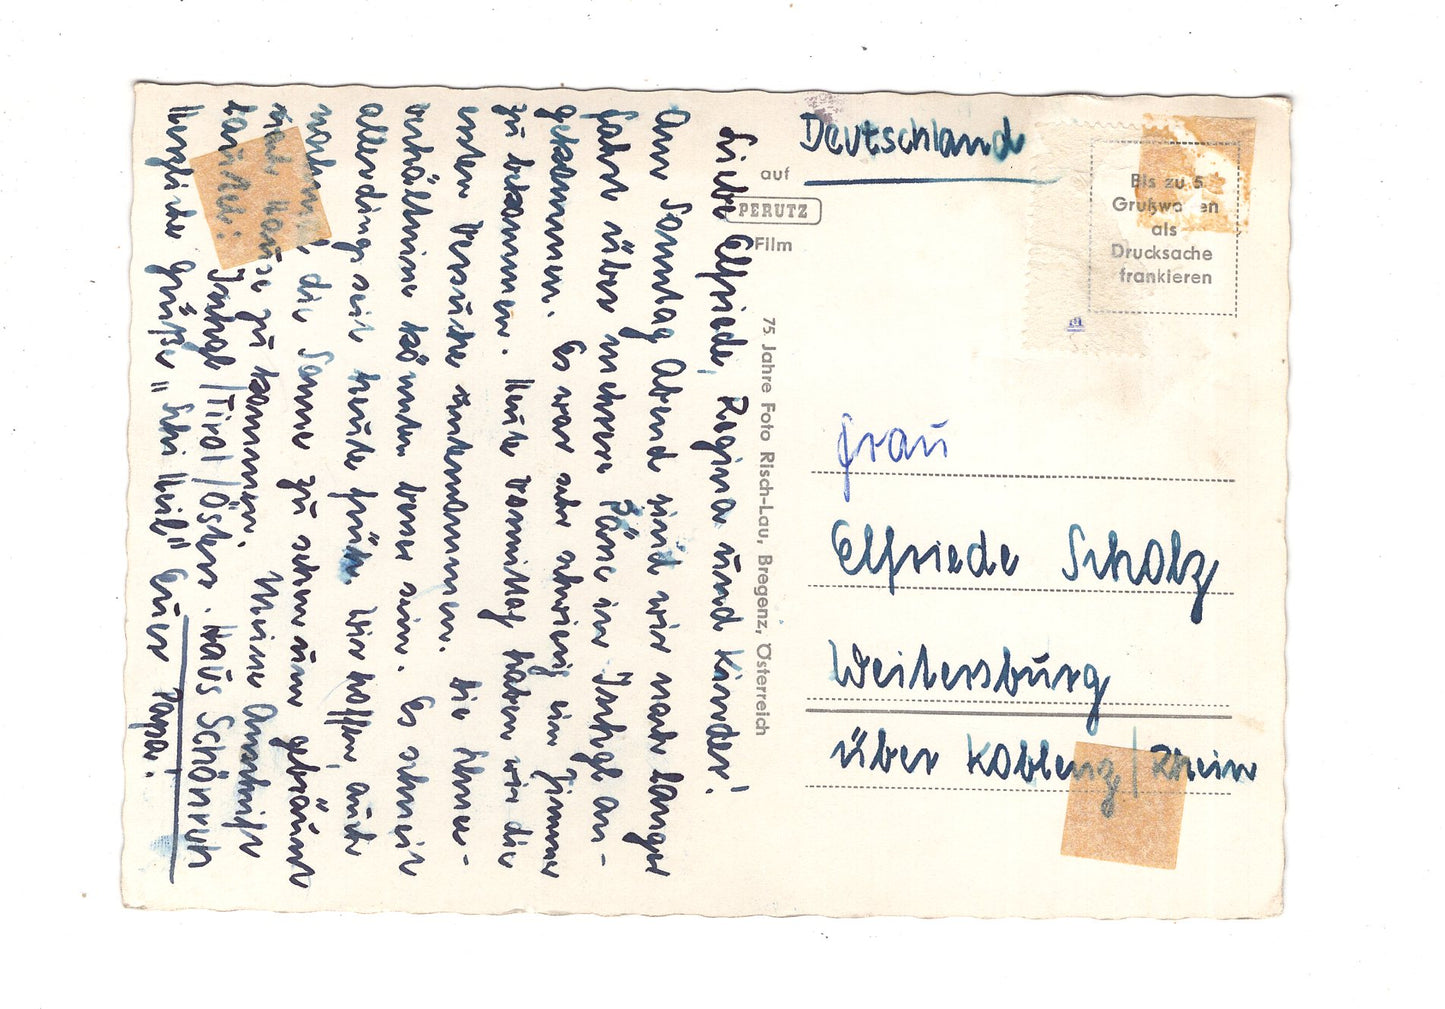 Deutschland
auf
PERUTZ
Film
Bis zu 5
Grußworten
als
Drucksache
frankieren
Frau
Elfriede Scholz
Weitersburg
über Koblenz/Rhein
75 Jahre Foto Risch-Lau, Bregenz, Österreich
Liebe Elfriede, Regina und Kinder!
Am Sonntag Abend sind wir nach langer
Fahrt über mehrere Pässe in Ischgl an-
gekommen. Es war sehr schwierig ein Zimmer
zu bekommen. Heute vormittag haben wir die
ersten Versuche unternommen. Die Schnee-
verhältnisse könnten besser sein. Es schneit
allerdings seit heute früh. Wir hoffen, auch
die Sonne zu sehen und gebräunt
nach Hause zu kommen. Meine Anschrift
Ischgl/Tirol/Österr. Haus Schönruh
Herzliche Grüße u "Schi Heil" Euer Papa!